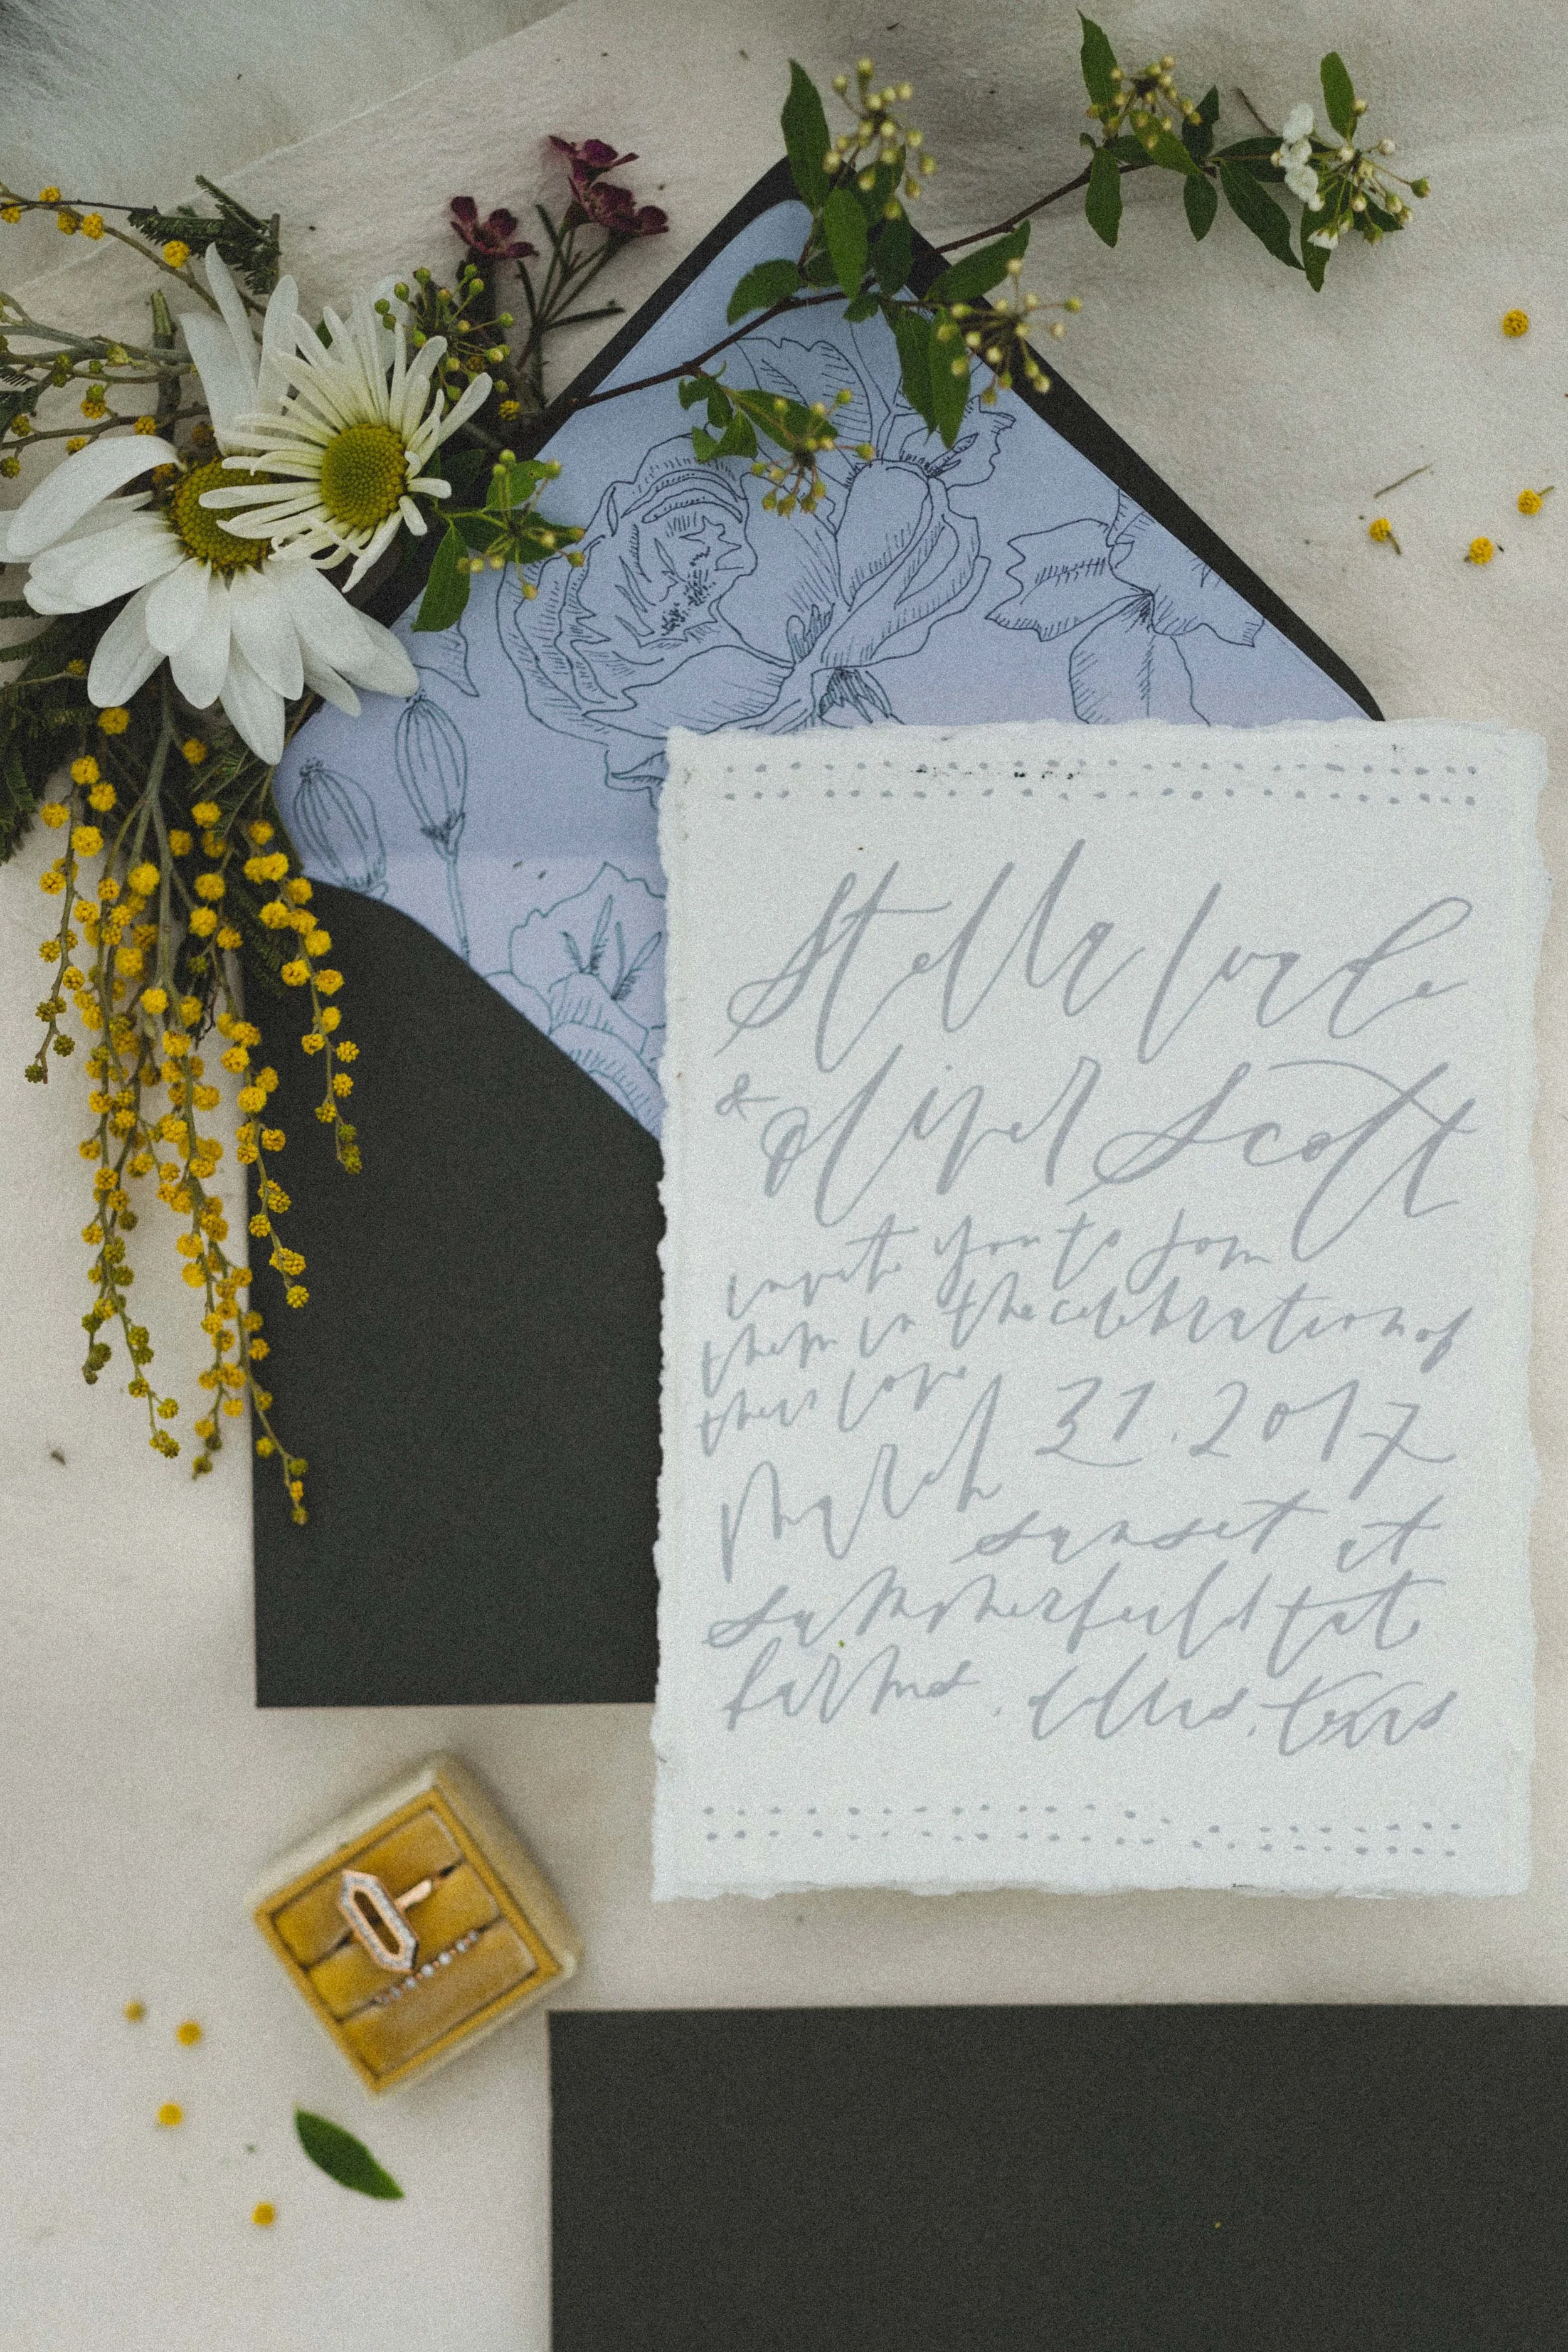 Stella Wade
& Oliver Scott
invite you to join
them in the celebration of
their love
March 31. 2017
sunset at
summerfield at
farms. Ellis, Texas